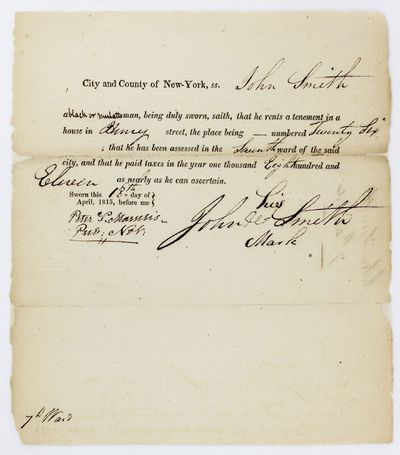 City and County of New-York, ss. John Smith
a black or mulatto man, being duly sworn, saith, that he rents a tenement in a
house in Henry street, the place being — numbered Twenty Six
; that he has been assessed in the Seventh ward of the said
city, and that he paid taxes in the year one thousand Eight hundred and
Eleven as nearly as he can ascertain.
Sworn this 18th day of
April, 1815, before me
his
John Smith
Mark
Peter
Pub: Not:
7th Ward